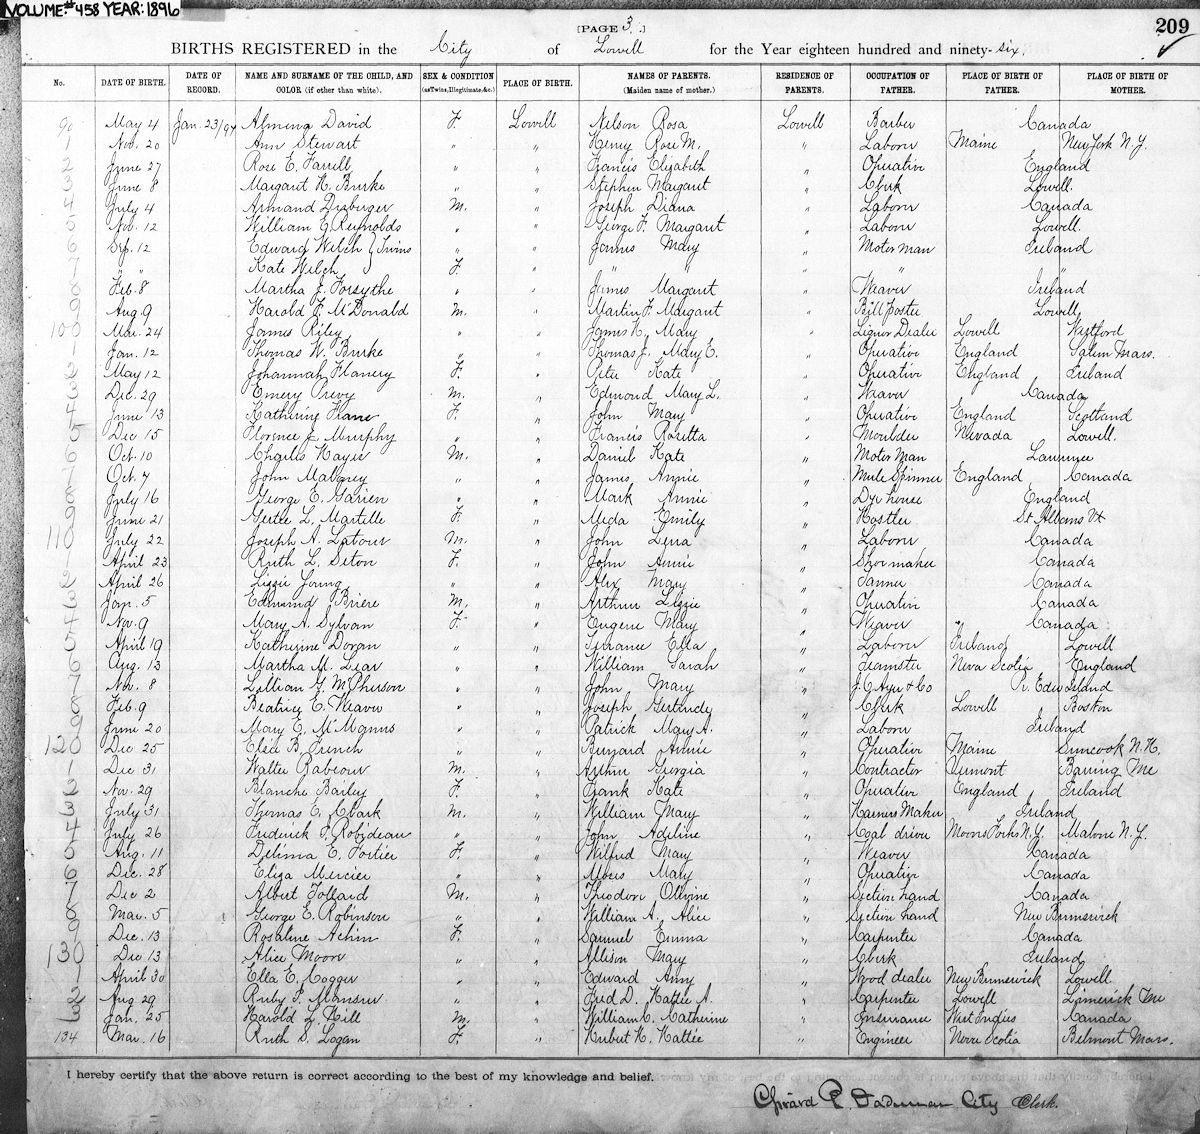 VOLUME: #458 YEAR: 1896
[PAGE 3.]
209
BIRTHS REGISTERED in the City of Lowell for the Year eighteen hundred and ninety-six.
No. DATE OF BIRTH. DATE OF RECORD. NAME AND SURNAME OF THE CHILD, AND COLOR (if other than white). SEX & CONDITION (as Twins, Illegitimate, &c.) PLACE OF BIRTH. NAMES OF PARENTS. (Maiden name of mother.) RESIDENCE OF PARENTS. OCCUPATION OF FATHER. PLACE OF BIRTH OF FATHER. PLACE OF BIRTH OF MOTHER.
90 May 4 Jan. 23/97 Almina David F. Lowell Nelson Rosa Lowell Barber Canada
1 Nov. 20 Ann Stewart " " Henry Rose M. " Laborer Maine New York N.Y.
2 June 27 Rose E. Farrell " " Francis Elizabeth " Operative England
3 June 8 Margaret H. Burke " " Stephen Margaret " Clerk Lowell.
4 July 4 Armand M. " Joseph Diana " Laborer Canada
5 Nov. 12 William G. Reynolds " " George F. Margaret " Laborer Lowell.
6 Sep. 12 Edward Welch } Twins " " James Mary " Motor man Ireland
7 " " Kate Welch } F. " " " " " "
8 Feb. 8 Martha J. Forsythe " " James Margaret " Weaver Ireland
9 Aug. 9 Harold F. McDonald M. " Martin F. Margaret " Bill poster Lowell
100 Mar. 24 James Riley " " James H. Mary " Liquor Dealer Lowell Westford
1 Jan. 12 Thomas W. Burke " " Thomas J. Mary E. " Operative England Salem Mass.
2 May 12 Johannah Flanery F. " Peter Kate " Operative England Ireland
3 Dec. 29 Emery M. " Edmond Mary L. " Weaver Canada
4 June 13 Katherine F. " John Mary " Operative England Scotland
5 Dec 15 Florence J. Murphy " " Francis Rosetta " Moulder Nevada Lowell.
6 Oct. 10 Charles Hayes M. " Daniel Kate " Motor Man Lawrence
7 Oct. 7 John Maloney " " James Annie " Mule Spinner England Canada
8 July 16 George E. " " Mark Annie " Dye house England
9 June 21 Gertie L. Martelle F. " Meda Emily " Hostler St Albans Vt
110 July 22 Joseph A. Latour M. " John Lena " Laborer Canada
1 April 23 Ruth L. Seton F. " John Annie " Shoemaker Canada
2 April 26 Lizzie Young " " Alex Mary " Tanner Canada
3 Jan. 5 Edmund Briere M. " Arthur Lizzie " Operative Canada
4 Nov. 9 Mary A. Sylvan F. " Eugene Mary " Weaver " Canada
5 April 19 Katherine Doran " " Terrance Ella " Laborer Ireland Lowell
6 Aug. 13 Martha M. Lear " " William Sarah " Teamster Nova Scotia England
7 Nov. 8 Lillian G. McPherson " " John Mary " J.C. Ayer & Co P. Edw Island
8 Feb. 9 Beatrice C. Weaver " " Joseph Gertrude " Clerk Lowell Boston
9 June 20 Mary E. McManus " " Patrick Mary A. " Laborer Ireland
120 Dec 25 Elsie B. French " " Annie " Operative Maine Suncook N.H.
1 Dec 31 Walter Rabeour M. " Arthur Georgia " Contractor Vermont Baring Me
2 Nov. 29 Blanche Bailey F. " Frank Kate " Operative England Ireland
3 July 31 Thomas E. Clark M. " William Mary " Harness Maker Ireland
4 July 26 Frederick P. Robideau " " John Adeline " Coal driver Moors Forks N.Y. Malone N.Y.
5 Aug. 11 Delima E. Fortier F. " Wilfred Mary " Weaver Canada
6 Dec. 28 Eliza Mercier " " Moses Mary " Operative Canada
7 Dec 2 Albert Tollard M. " Theodore Olivine " Section hand Canada
8 Mar. 5 George E. Robinson " " William A. Alice " Section hand New Brunswick
9 Dec. 13 Rosaline Achin F. " Samuel Emma " Carpenter Canada
130 Dec 13 Alice Moon " " Allison Mary " Clerk Ireland
1 April 30 Ella E. Cogger " " Edward Amy " Wood dealer New Brunswick Lowell.
2 Aug 29 Ruby P. Mansur " " Fred D. Hattie A. " Carpenter Lowell Limerick Me
3 Jan. 25 Harold L. Hill M. " William C. Catherine " Insurance West Indies Canada
134 Mar. 16 Ruth S. Logan F. " Hubert H. Hattie " Engineer Nova Scotia Belmont Mass.
I hereby certify that the above return is correct according to the best of my knowledge and belief.
Girard P. Dadman City Clerk.